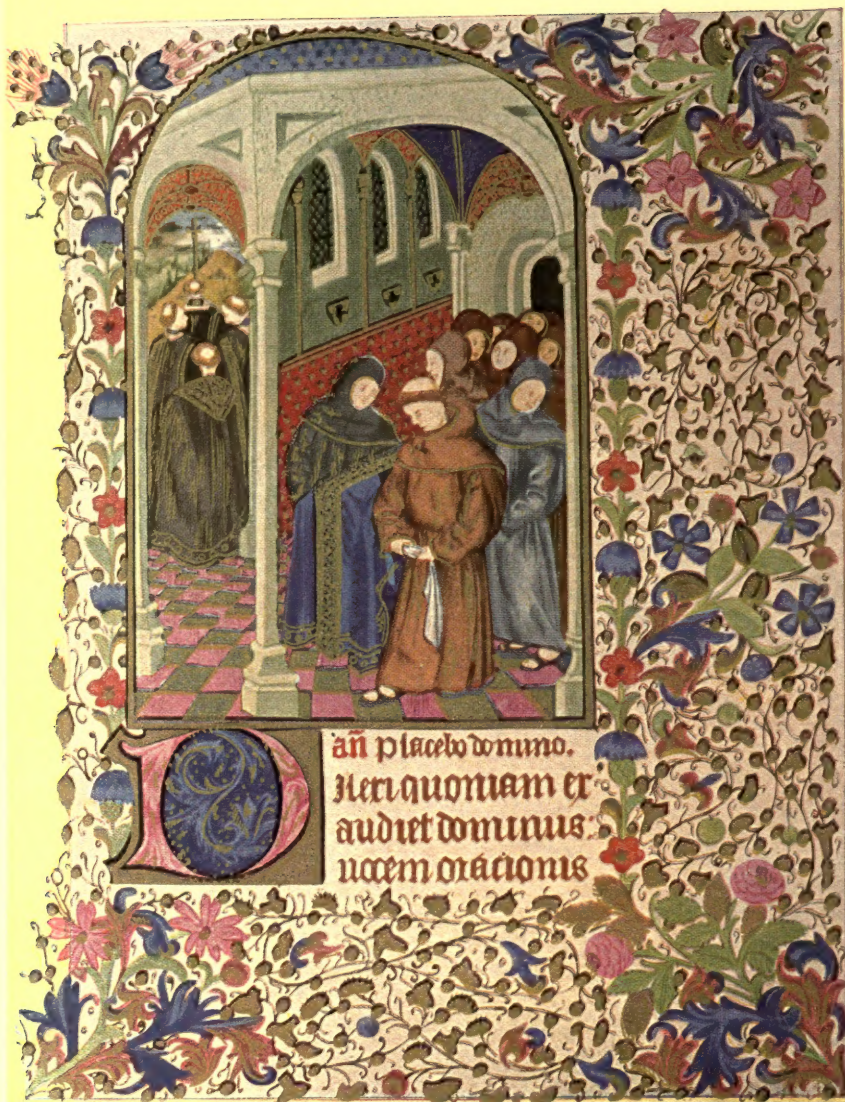 añ Placebo domino.
DIlexi quoniam ex
audiet dominus:
uocem oracionis